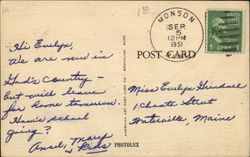 MONSON
SEP
5
12 PM
1951
POST CARD
Hi Evelyn,
We are now in
God's country -
but will leave
for home tomorrow.
How's school
going?
Mary
& Kids
Miss Evelyn
1 Cheate Street
Waterville, Maine
PHOTOLUX